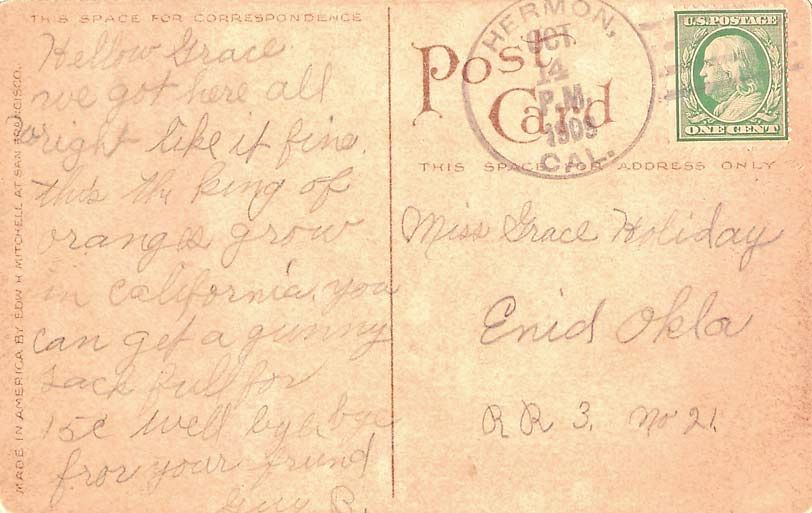 THIS SPACE FOR CORRESPONDENCE
Hellow Grace
we got here all
right like it fine.
this the king of
oranges grow
in california. you
can get a gunny
sack full for
15¢ well bye bye
from your friend
Guy R.
MADE IN AMERICA BY EDW H MITCHELL AT SAN FRANCISCO.
Post
Card
HERMON,
OCT
14
P.M.
1909
CAL.
U.S. POSTAGE
ONE CENT
THIS SPACE FOR ADDRESS ONLY
Miss Grace Holiday
Enid Okla
R R 3. No 21.